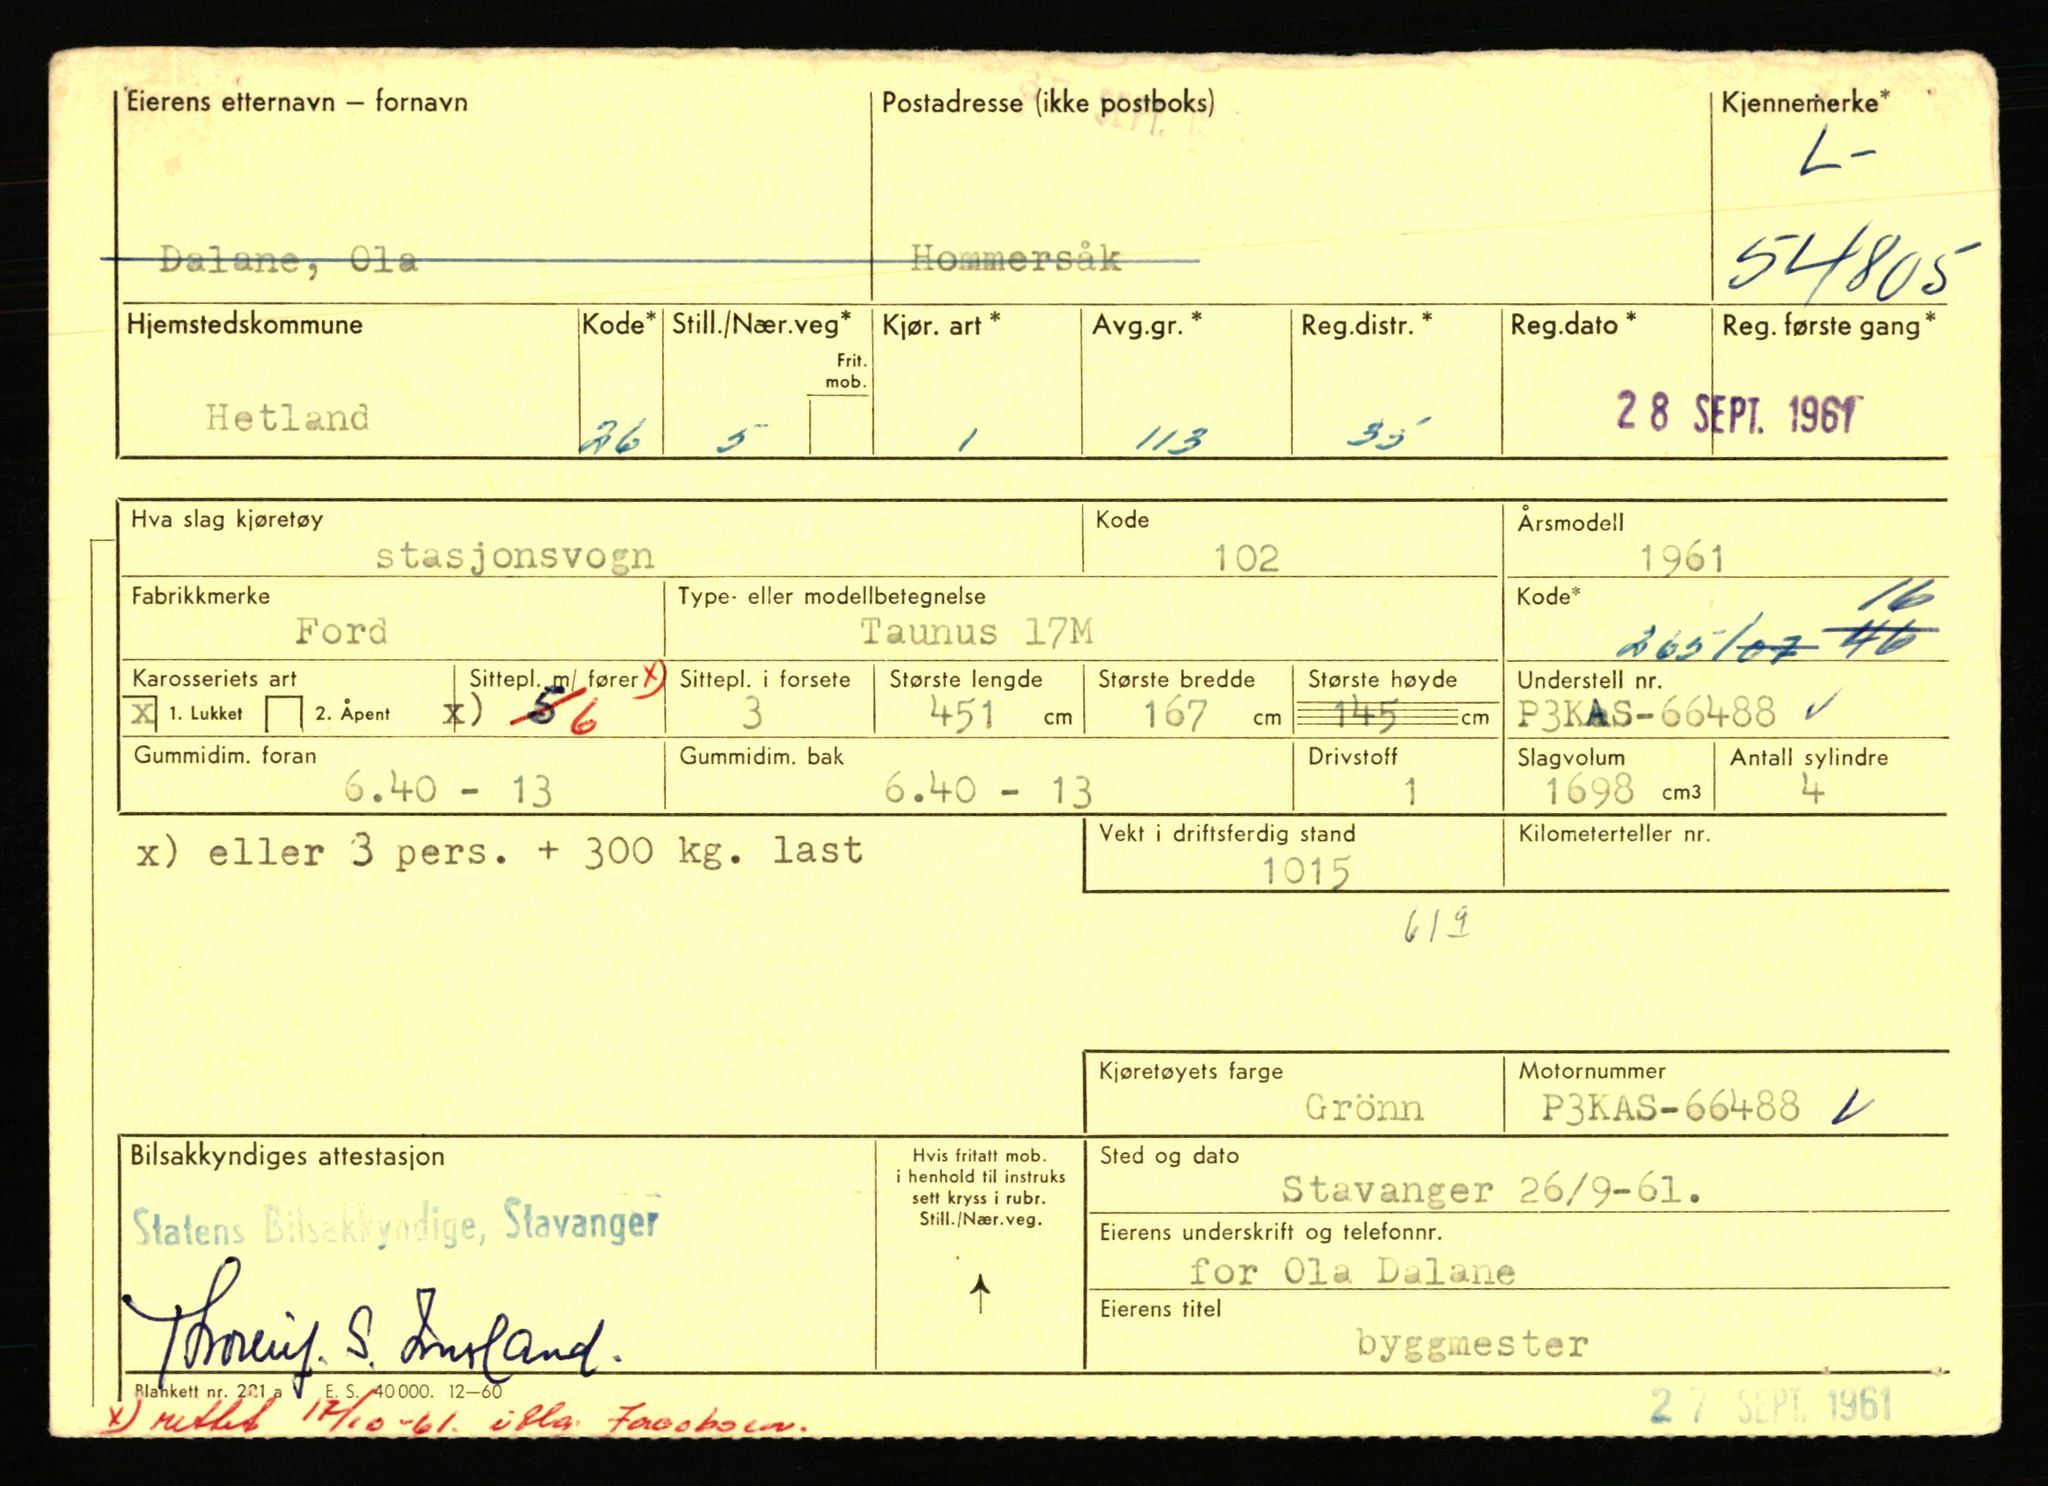 Eierens etternavn – fornavn Postadresse (ikke postboks) Kjennemerke*
L-
Dalane, Ola Hommersåk 54805
Hjemstedskommune Kode* Still./Nær.veg* Kjør. art * Avg.gr. * Reg.distr. * Reg.dato * Reg. første gang *
Frit.
mob.
Hetland 26 5 1 113 35 28 SEPT. 1961
Hva slag kjøretøy Kode Årsmodell
stasjonsvogn 102 1961
Fabrikkmerke Type- eller modellbetegnelse Kode* 16
Ford Taunus 17M 265/07 46
Karosseriets art Sittepl. m/ fører x) Sittepl. i forsete Største lengde Største bredde Største høyde Understell nr.
X 1. Lukket 2. Åpent x) 5 6 3 451 cm 167 cm 145 cm P3KAS-66488
Gummidim. foran Gummidim. bak Drivstoff Slagvolum Antall sylindre
6.40 - 13 6.40 - 13 1 1698 cm3 4
x) eller 3 pers. + 300 kg. last Vekt i driftsferdig stand Kilometerteller nr.
1015
619
Kjøretøyets farge Motornummer
Grönn P3KAS-66488
Bilsakkyndiges attestasjon Hvis fritatt mob. Sted og dato
i henhold til instruks
sett kryss i rubr. Stavanger 26/9-61.
Statens Bilsakkyndige, Stavanger Still./Nær.veg. Eierens underskrift og telefonnr.
for Ola Dalane
S. Eierens titel
byggmester
Blankett nr. 221 a E. S. 40 000. 12—60 27 SEPT. 1961
x) rettet 17/10-61.